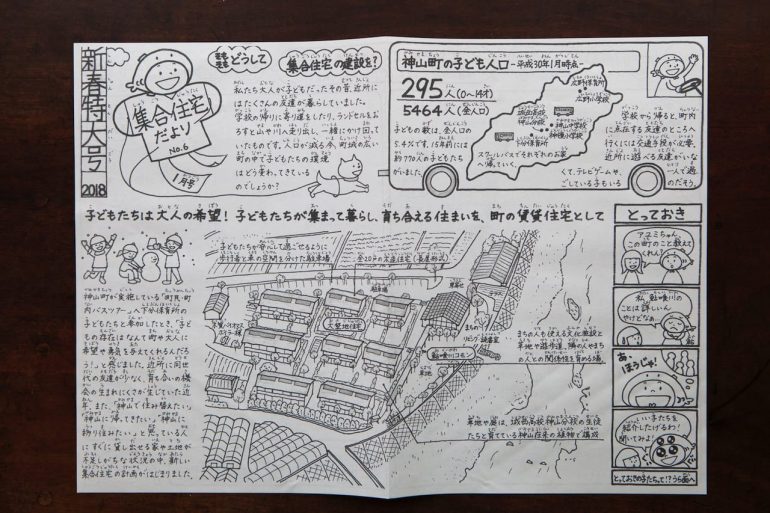 新春特大号
2018
集合住宅
だより
No.6
1月号
どうして
集合住宅の建設を?
私たち大人が子どもだったその昔、近所に
はたくさんの友達が暮らしていました。
学校の帰りに寄り道をしたり、ランドセルをお
ろすと山や川へ走り出し、一緒にかけ回って
いたものです。人口が減る今、町域の広い
町の中で子どもたちの環境
はどう変わってきている
のでしょうか?
神山町の子ども人口 -平成30年1月時点-
295人(0〜14才)
5464人(全人口)
子どもの数は、全人口の
5.4%です。15年前には
約770人の子どもたち
がいました。
広野保育所
広野小学校
城西高校
神山分校
神山中学校
神領小学校
下分保育所
スクールバスでそれぞれのお家
へ帰っていく。
学校から帰ると、町内
に点在する友達のところへ
行くには交通手段が必要。
近所に遊べる友達がいな
くて、テレビゲームや、一人で過
ごしている子もいるのだそう。
子どもたちは大人の希望! 子どもたちが集まって暮らし、育ち合える住まいを、町の賃貸住宅として
神山町が実施している「町民・町
内バスツアー」へ下分保育所の
子どもたちと参加したとき、「子ど
もの存在はなんて町や大人に
希望や勇気を与えてくれるんだろ
う!」と感じました。近所に同世
代の友達が少なく、育ち合いの機
会の生まれにくさが生じていた近
年。また、「神山で住み替えたい」
「神山に帰ってきたい」「神山に
移り住みたい」と思っている人
にすぐに貸し出せる家や土地が
不足しがちな状況の中、新しい
集合住宅の計画がはじまりました。
子どもたちが安心して過ごせるように
歩行者と車の空間を分けた駐車場
全20戸の木造住宅(長屋形式)
大埜地住宅
木質バイオマス
ボイラー棟
鮎喰川コモン
まちの
リビング・読書室
テラス
まちの人も使える文化施設と
草地や遊歩道。隣の人やまち
の人との関係性を育める場。
草地や庭は、城西高校神山分校の生徒
たちと育てている神山在来の植物で構成
とっておき
アユミちゃん、
この町のこと教えて
くれん?
私、鮎喰川の
ことは詳しいん
やけどなぁ…
あ、
ほうじゃ!
いい子たちを
紹介したげるわ!
聞いてみよ!
とっておきの子たちって!? うら面へ